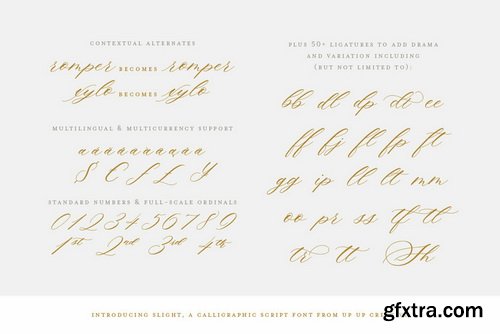 CONTEXTUAL ALTERNATES
romper BECOMES romper
xylo BECOMES xylo
MULTILINGUAL & MULTICURRENCY SUPPORT
STANDARD NUMBERS & FULL-SCALE ORDINALS
0123456789
1st 2nd 3rd 4th
PLUS 50+ LIGATURES TO ADD DRAMA
AND VARIATION INCLUDING
(BUT NOT LIMITED TO):
bb dl dp dt ee
ff fj fl fp ft
gg ip ll lt mm
oo pr ss tf tl
tr tt Th
INTRODUCING SLIGHT, A CALLIGRAPHIC SCRIPT FONT FROM UP UP
gfxtra.com